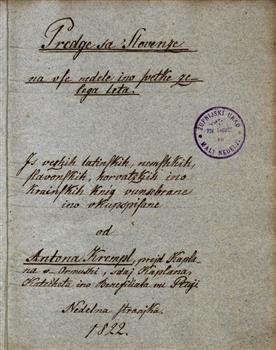 Predge sa Slovenze
na vſe nedele ino ſvetke ze-
lega leta.
Is vezhih latinſkih, nemſhkih,
ſlavenſkih, horvatzkih ino
krainſkih knig vunsbrane
ino vkupspiſane
od
Antona Krempl, prejd Kapla-
na v Ormushi, sdaj Kaplana,
Katecheta ino Beneficiata vu Ptuji
Nedelna ſtran
1822.
ŽUPNIJSKI URAD
MALI NEDELJI